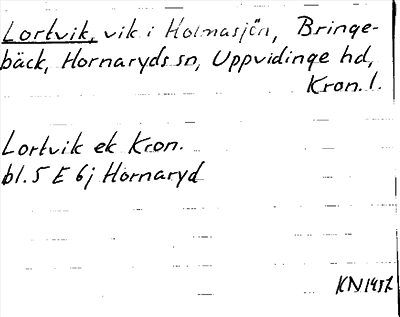 Lortvik, vik i Holmasjön, Bringe-
bäck, Hornaryds sn, Uppvidinge hd,
Kron. l.
Lortvik ek Kron.
bl. 5 E 6j Hornaryd